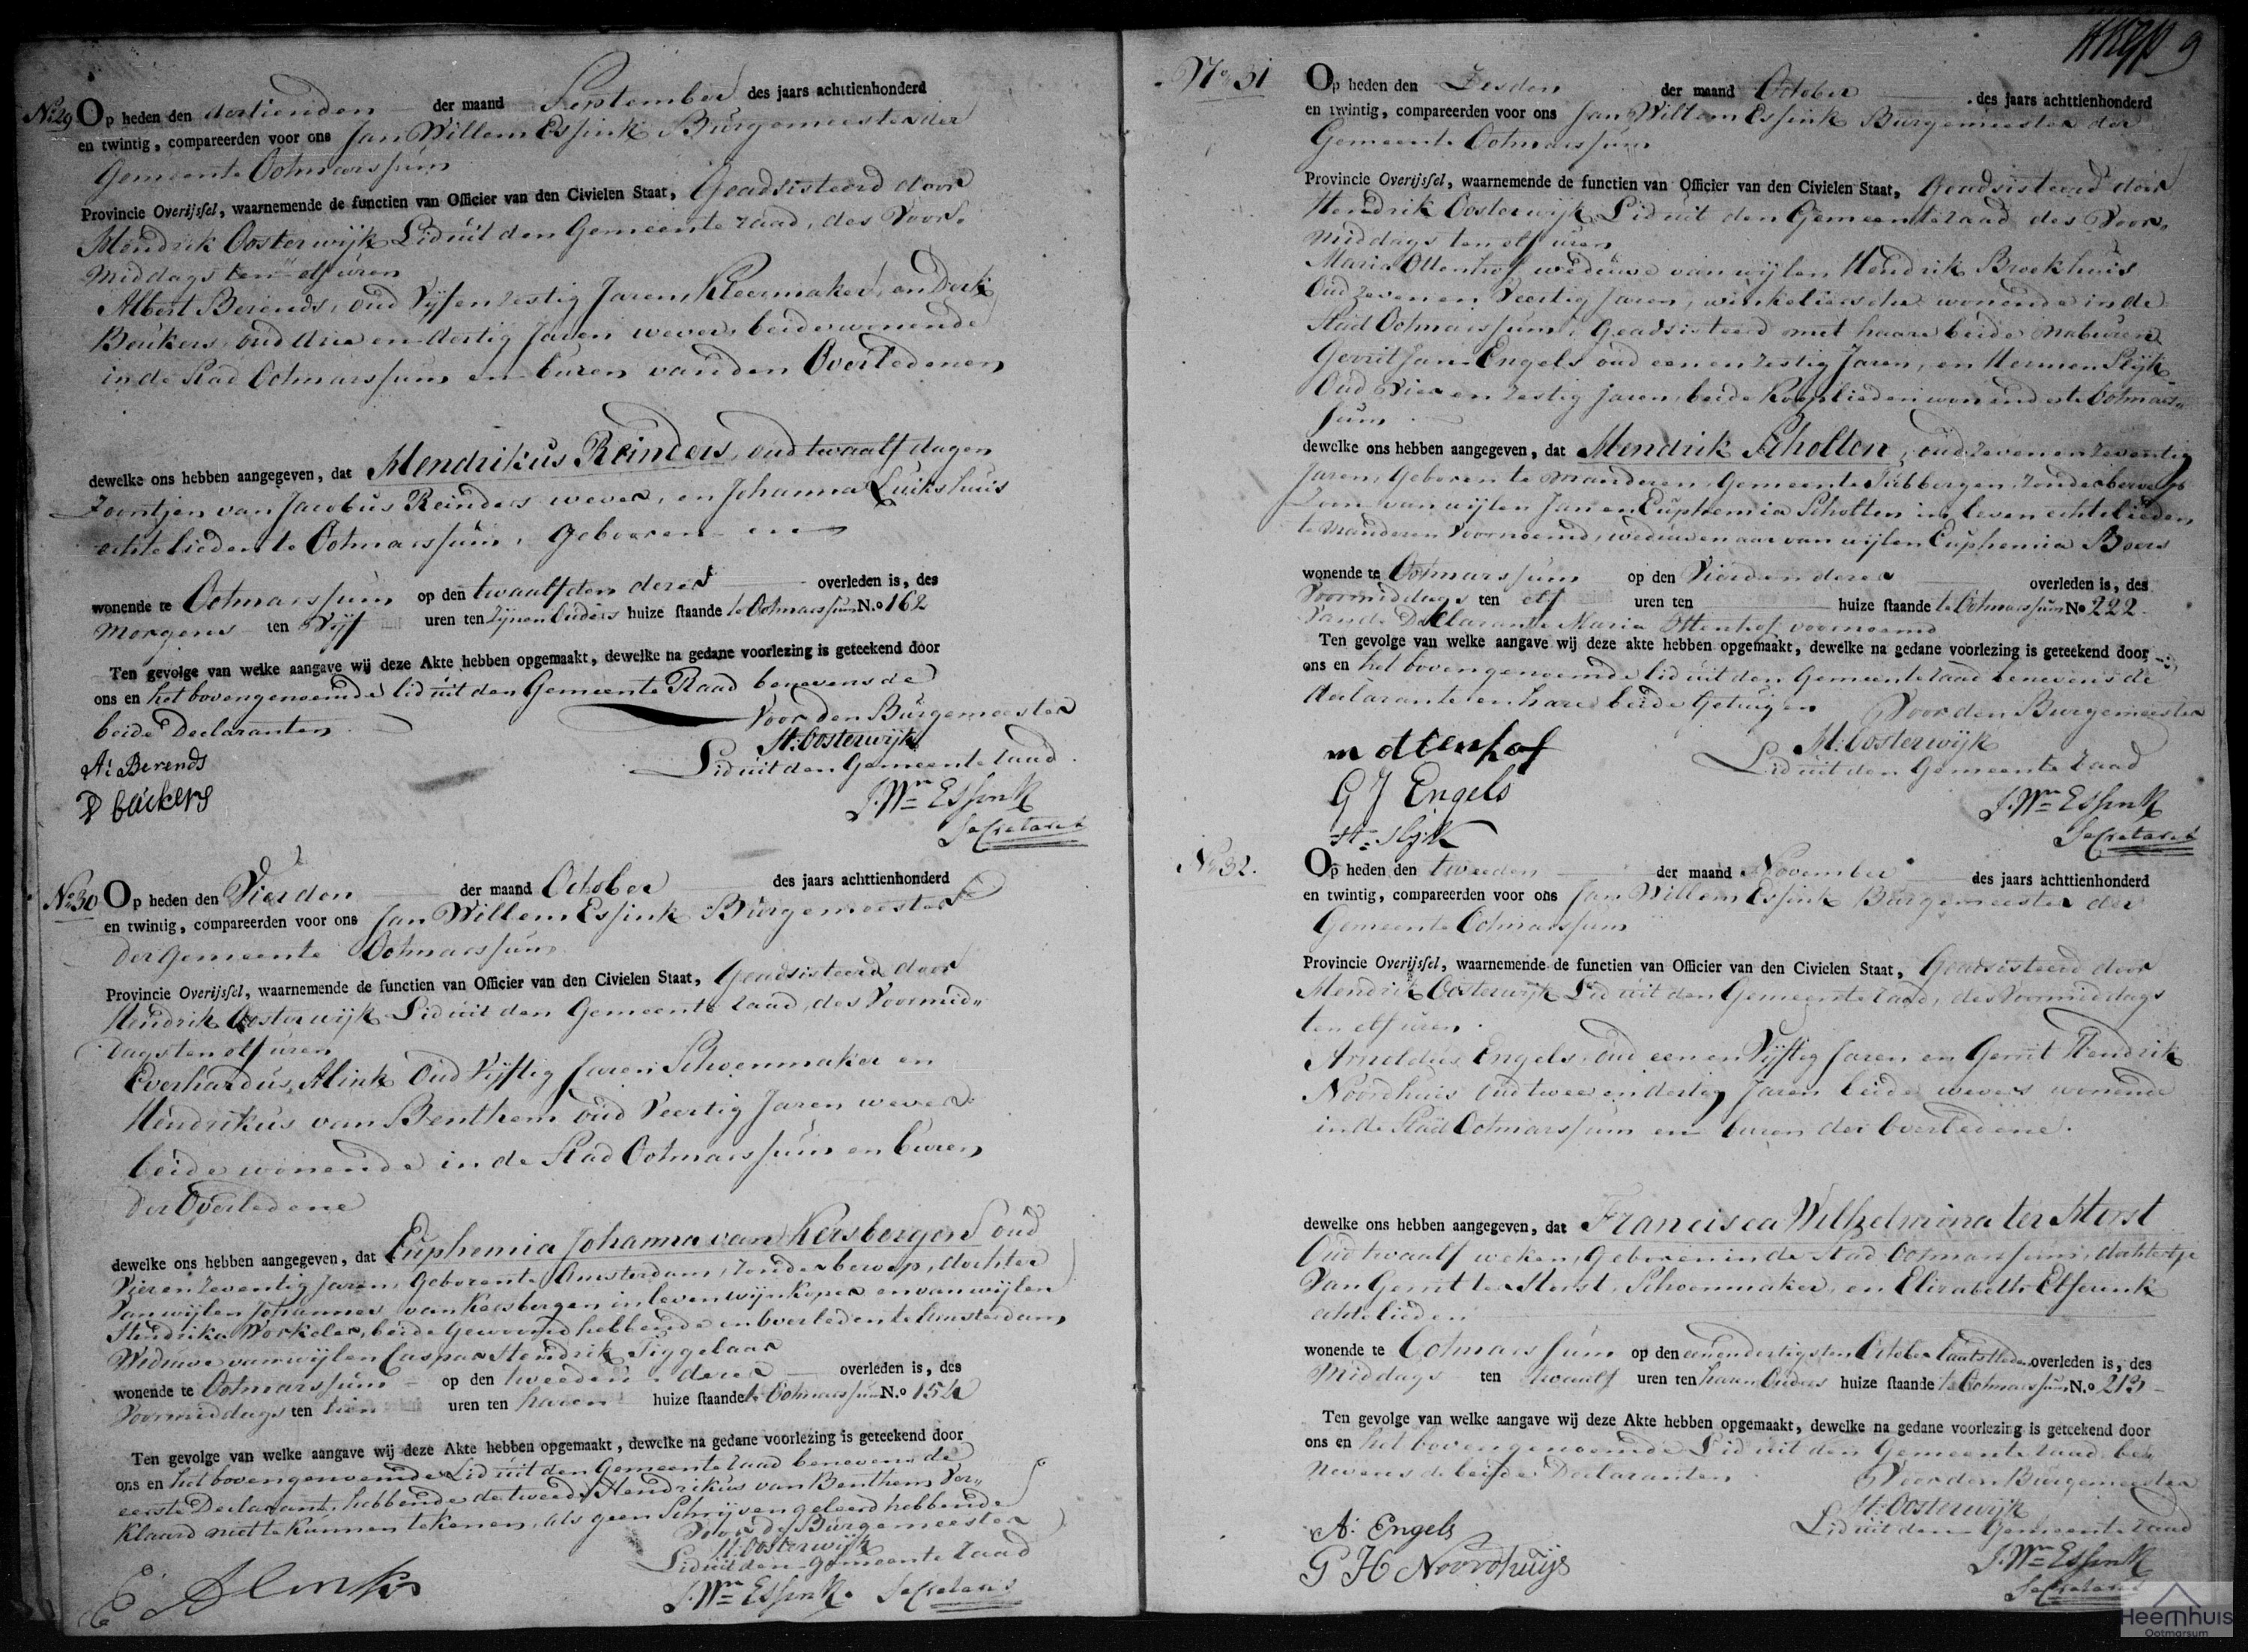 No 29 Op heden den dertienden der maand September des jaars achttienhonderd
en twintig, compareerden voor ons Jan Willem Essink Burgemeester der
Gemeente Ootmarssum
Provincie Overijssel, waarnemende de functien van Officier van den Civielen Staat, Geadsisteerd door
Hendrik Oosterwijk Lid uit den Gemeente raad, des Voor„
middags ten elf uren
Albert Berends, oud Vijf en zestig Jaren, Kleermaker, en Derk
Beukers, oud drie en dertig Jaren wever, beide wonende
in de Stad Ootmarssum en buren van den Overledenen
dewelke ons hebben aangegeven, dat Hendrikus Reinders, oud twaalf dagen
Zoontjen van Jacobus Reinders wever, en Johanna Luikshuis
echtelieden te Ootmarssum, geboren en
wonende te Ootmarssum op den twaalfden deres overleden is, des
Morgens ten Vijf uren ten zijnen Ouders huize staande te Ootmarssum N.o 162
Ten gevolge van welke aangave wij deze Akte hebben opgemaakt, dewelke na gedane voorlezing is geteekend door
ons en het bovengenoemde lid uit den Gemeente Raad benevens de
beide Declaranten
Voor den Burgemeester
H: Oosterwijk
Lid uit den Gemeente raad
A: Berends
D backers
J. Wm Essink
Secretaris
No 30 Op heden den Vierden der maand October des jaars achttienhonderd
en twintig, compareerden voor ons Jan Willem Essink Burgemeester
der Gemeente Ootmarssum
Provincie Overijssel, waarnemende de functien van Officier van den Civielen Staat, Geadsisteerd door
Hendrik Oosterwijk Lid uit den Gemeente raad, des Voormid„
dags ten elf uren
Everhardus Alink Oud Vijftig Jaren Schoenmaker en
Hendrikus van Benthem oud Veertig Jaren wever
beide wonende in de Stad Ootmarssum en buren
der Overledene
dewelke ons hebben aangegeven, dat Euphemia Johanna van Keesbergen oud
Vier en zeventig Jaren, Geboren te Amsterdam, zonder beroep, dochter
van wijlen Johannes van Keesbergen in leven wijnkoper en van wijlen
Hendrika Workeler, beide gewoond hebbende en overleden te Amsterdam,
Weduwe van wijlen Caspar Hendrik Tiggelaar
wonende te Ootmarssum op den tweeden deres overleden is, des
Voormiddags ten tien uren ten haren huize staande te Ootmarssum N.o 154
Ten gevolge van welke aangave wij deze Akte hebben opgemaakt, dewelke na gedane voorlezing is geteekend door
ons en het bovengenoemde Lid uit den Gemeente raad benevens de
eerste Declarant, hebbende de tweede Hendrikus van Benthem ver„
klaard niet te kunnen tekenen, als geen Schrijven geleerd hebbende
Voor de Burgemeester
H. Oosterwijk
Lid uit den gemeente raad
E Alink
J. Wm Essink. Secretaris
9
No 31 Op heden den Zesden der maand October des jaars achttienhonderd
en twintig, compareerden voor ons Jan Willem Essink Burgemeester der
Gemeente Ootmarssum
Provincie Overijssel, waarnemende de functien van Officier van den Civielen Staat, Geadsisteerd door
Hendrik Oosterwijk Lid uit den Gemeente raad des Voor„
middags ten elf uren
Maria Ottenhof weduwe van wijlen Hendrik Broekhuis
Oud zeven en Veertig Jaren, winkeliersche wonende in de
Stad Ootmarssum, Geadsisteerd met haare beide naburen
Gerrit Jan Engels oud een en zestig Jaren, en Hermen Slijk
Oud Vier en zestig Jaren, beide Kooplieden wonende te Ootmars„
sum
dewelke ons hebben aangegeven, dat Hendrik Scholten, oud zeven en zeventig
Jaren, Geboren te Manderen, Gemeente Tubbergen, zonder beroep
Zoon van wijlen Jan en Euphemia Scholten in leven echtelieden
te Manderen voornoemd, weduwenaar van wijlen Euphemia Boers
wonende te Ootmarssum op den Vierden deres overleden is, des
Voormiddags ten elf uren ten huize staande te Ootmarssum No 222
van de Declarante Maria Ottenhof voornoemd
Ten gevolge van welke aangave wij deze akte hebben opgemaakt, dewelke na gedane voorlezing is geteekend door
ons en het bovengenoemde lid uit den Gemeente raad benevens de
declarante en hare beide Getuigen
Voor den Burgemeester
H: Oosterwijk
Lid uit den Gemeente raad
m ottenhof
G J Engels
H: Slijk
J. Wm Essink
Secretaris
No 32. Op heden den tweeden der maand November des jaars achttienhonderd
en twintig, compareerden voor ons Jan Willem Essink Burgemeester der
Gemeente Ootmarssum
Provincie Overijssel, waarnemende de functien van Officier van den Civielen Staat, Geadsisteerd door
Hendrik Oosterwijk Lid uit den Gemeente raad, des Voormiddags
ten elf uren.
Arnoldus Engels, oud een en Vijftig Jaren en Gerrit Hendrik
Noordhuis Oud twee en dertig Jaren beide wevers wonende
in de Stad Ootmarssum en buren der Overledene.
dewelke ons hebben aangegeven, dat Francisca Wilhelmina ter Horst
Oud twaalf weken, Geboren in de Stad Ootmarssum, dochtertje
van Gerrit ter Horst, Schoenmaker, en Elisabeth Elferink
echtelieden
wonende te Ootmarssum op den eenendertigsten October laatstleden overleden is, des
Middags ten twaalf uren ten haren Ouders huize staande te Ootmarssum N.o 213
Ten gevolge van welke aangave wij deze Akte hebben opgemaakt, dewelke na gedane voorlezing is geteekend door
ons en het bovengenoemde Lid uit den Gemeente raad be„
nevens de beide Declaranten
Voor den Burgemeester
H: Oosterwijk
Lid uit den Gemeente raad
A: Engels
G H Noordhuijs
J. Wm Essink
Secretaris
Heemhuis
Ootmarsum